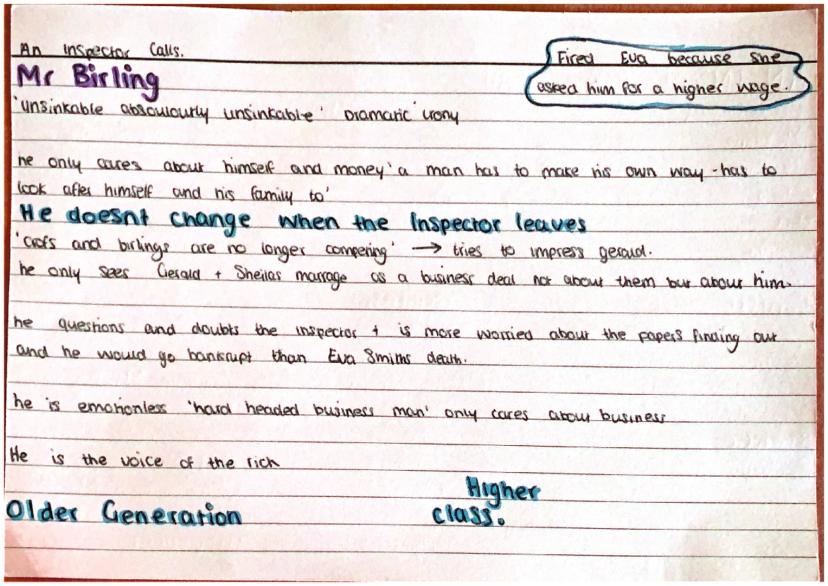 An Inspector Calls.
Fired Eva because she
asked him for a higher wage.
Mr Birling
'unsinkable absoulourly unsinkable' Dramatic irony
he only cares about himself and money 'a man has to make his own way - has to
look after himself and his family to'
He doesnt change when the Inspector leaves
'crofs and birlings are no longer compering' → tries to impress gerald.
he only sees Gerald + Sheilas marrage as a business deal not about them but about him.
he questions and doubts the inspector + is more worried about the papers finding out
and he would go bankrupt than Eva Smiths death.
he is emotionless 'hard headed business man' only cares about business
He is the voice of the rich
Older Generation
Higher
class.